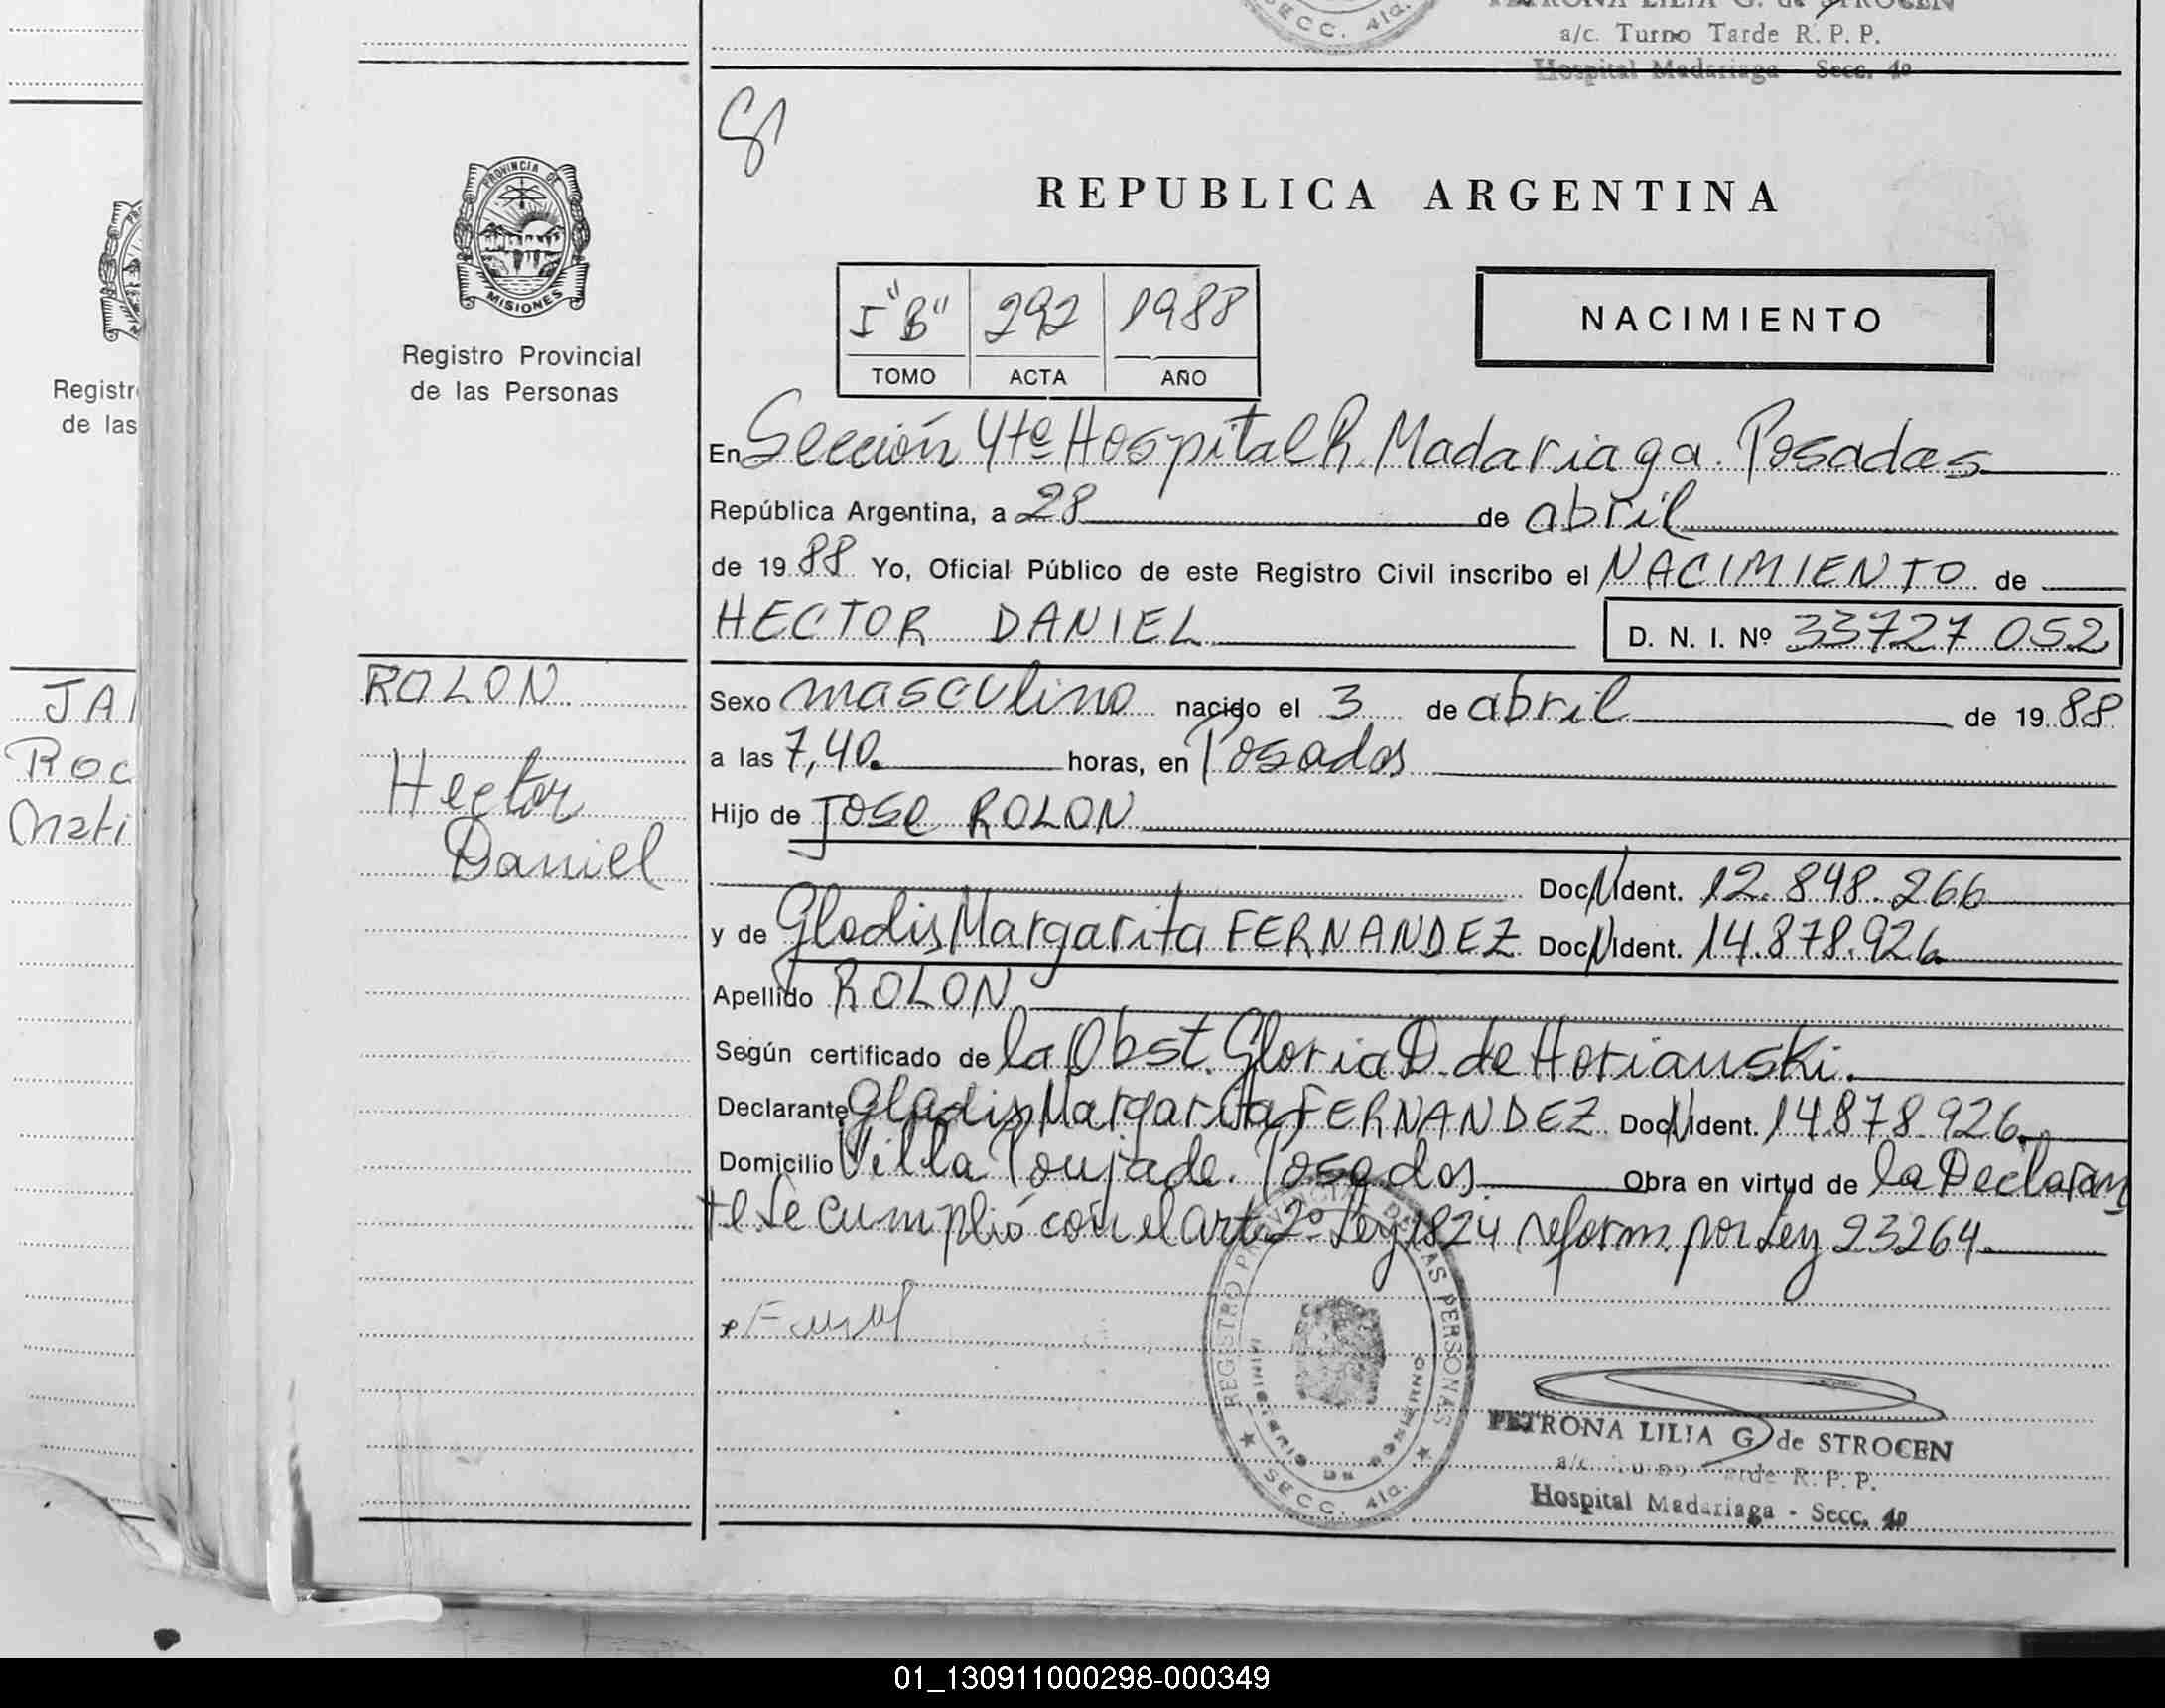 PETRONA LILIA G. de STROCEN
SECC. 4ta.
a/c. Turno Tarde R. P. P.
Hospital Madariaga Secc. 4º
REPUBLICA ARGENTINA
PROVINCIA DE
MISIONES
Registro Provincial
de las Personas
I "B" 292 1988
TOMO ACTA AÑO
NACIMIENTO
En Sección 4ta Hospital R. Madariaga. Posadas
República Argentina, a 28 de abril
de 1988 Yo, Oficial Público de este Registro Civil inscribo el NACIMIENTO de
HECTOR DANIEL D. N. I. Nº 33727 052
ROLON
Hector
Daniel
Sexo masculino nacido el 3 de abril de 1988
a las 7,40. horas, en Posadas
Hijo de Jose ROLON
Doc N Ident. 12.848.266
y de Gladis Margarita FERNANDEZ Doc N Ident. 14.878.926.
Apellido ROLON
Según certificado de la Obst. Gloria D. de Horianski.
Declarante Gladis Margarita FERNANDEZ Doc N Ident. 14.878.926.
Domicilio Villa Poujade. Posadas. Obra en virtud de la Declaran
te Se cumplió con el art 2º Ley 1824 reform. por Ley 23264.
REGISTRO PROVINCIAL DE LAS PERSONAS
SECC. 4ta.
PETRONA LILIA G. de STROCEN
a/c. Turno Tarde R. P. P.
Hospital Madariaga - Secc. 4º
Registr
de las
JA
Roc
Mati
01_130911000298-000349